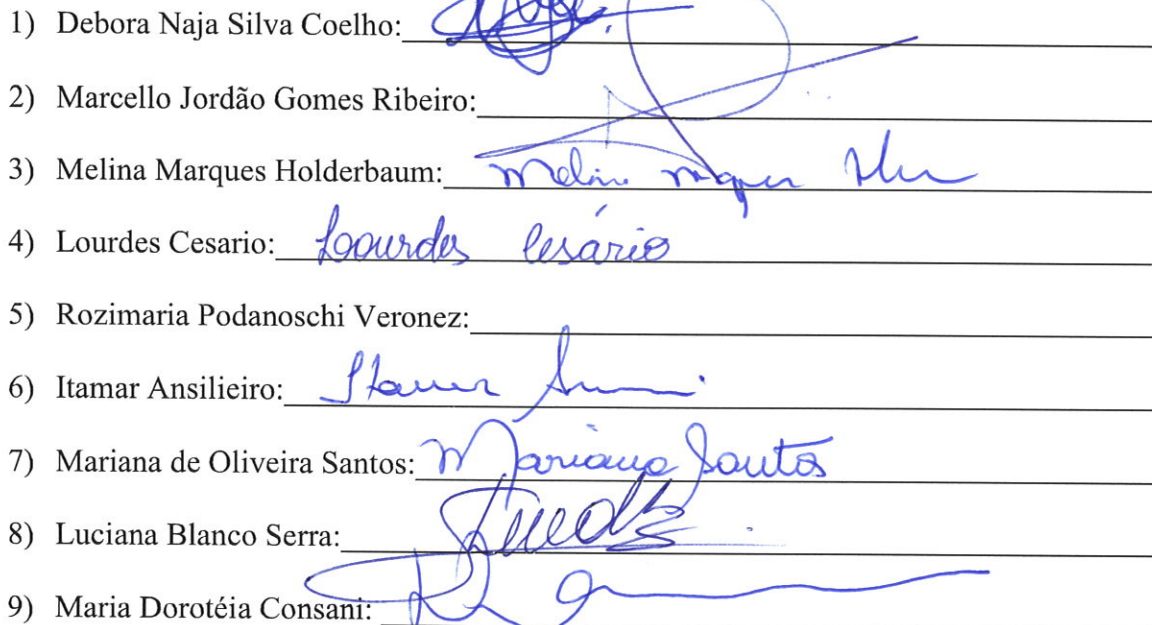 1) Debora Naja Silva Coelho:
2) Marcello Jordão Gomes Ribeiro:
3) Melina Marques Holderbaum:
4) Lourdes Cesario: Lourdes Cesário
5) Rozimaria Podanoschi Veronez:
6) Itamar Ansilieiro: Itamar
7) Mariana de Oliveira Santos: Mariana Santos
8) Luciana Blanco Serra:
9) Maria Dorotéia Consani: